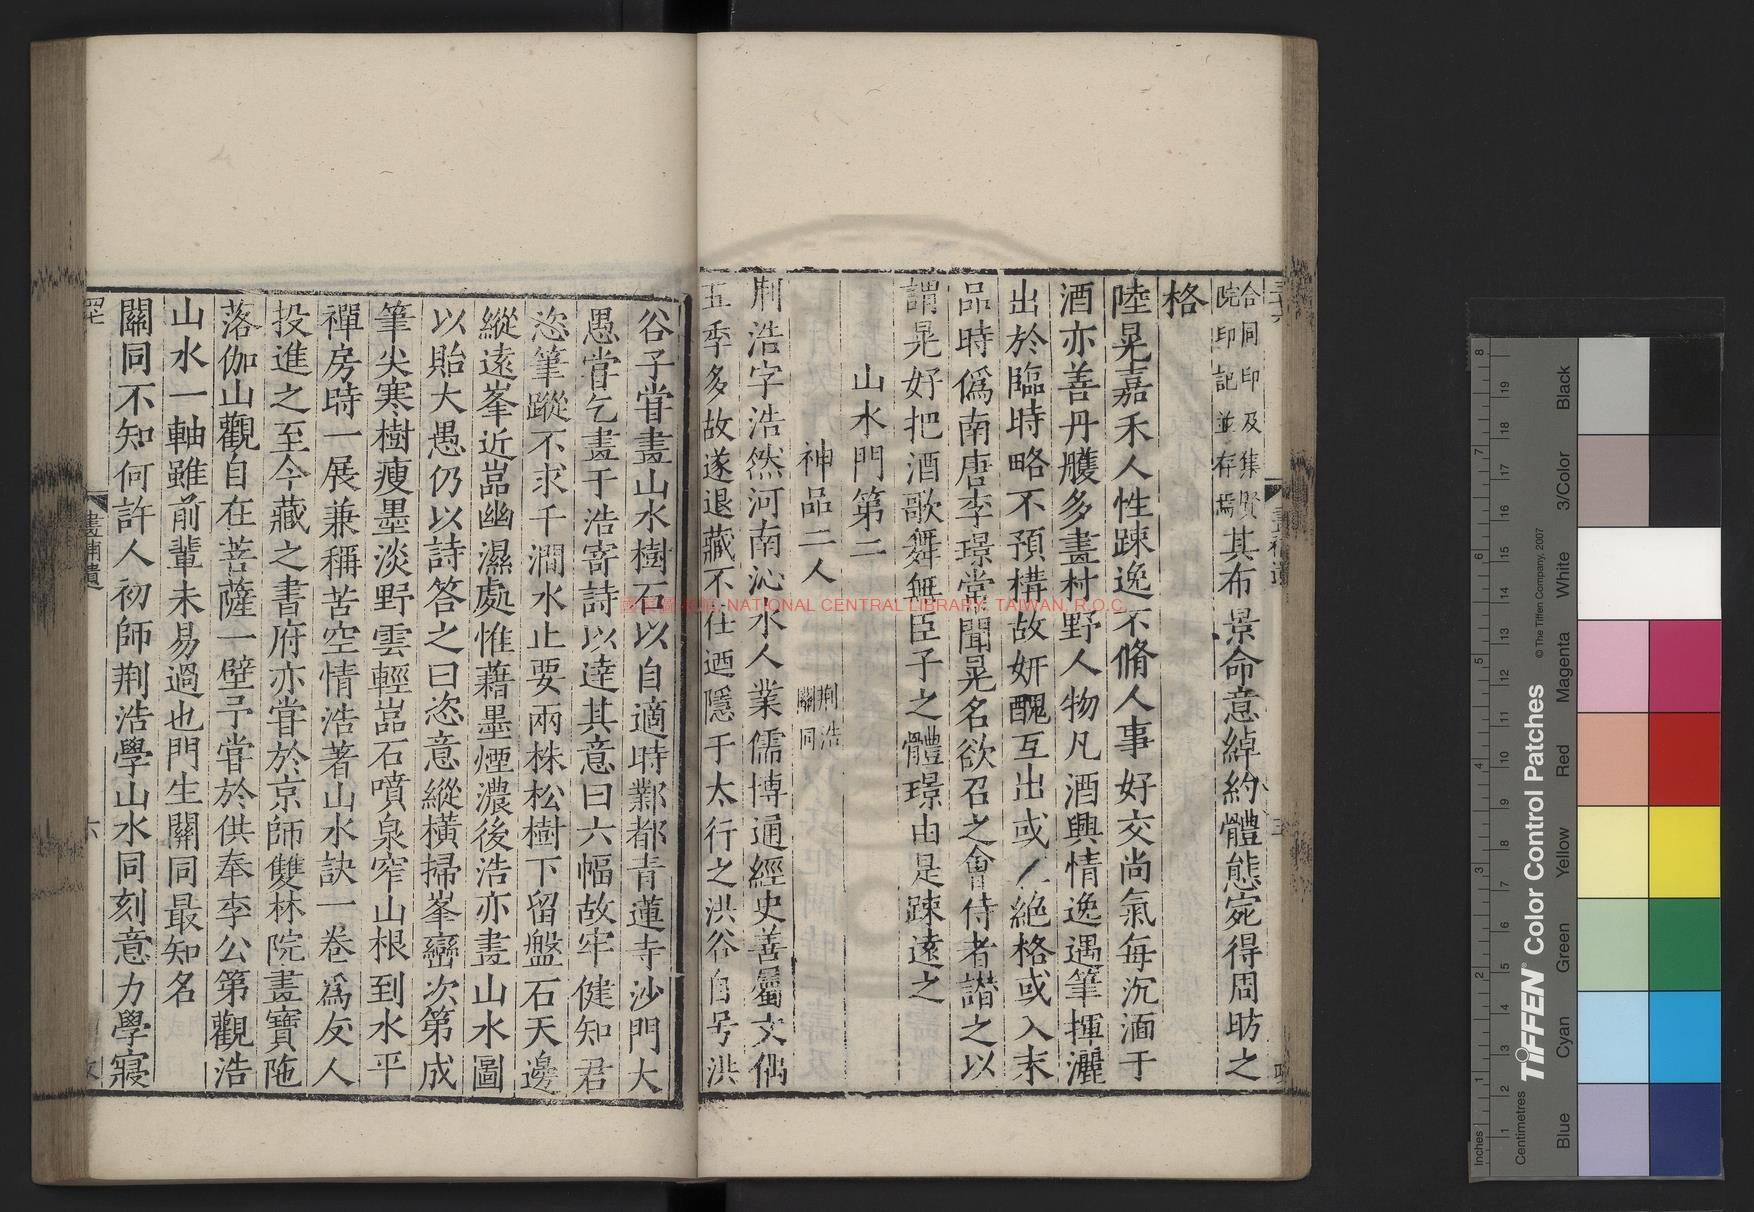 合同印及集賢
院印記並存焉其布景命意綽約體態宛得周昉之
格
陸晃嘉禾人性踈逸不脩人事好交尚氣每沉湎于
酒亦善丹雘多畫村野人物凡酒興情逸遇筆揮灑
出於臨時略不預構故妍醜互出或絶格或入末
品時僞南唐李璟常聞晃名欲召之會侍者譖之以
謂晃好把酒歌舞無臣子之體璟由是踈遠之
山水門第二
神品二人 荆浩 關同
荆浩字浩然河南沁水人業儒博通經史善屬文偶
五季多故遂退藏不仕迺隱于太行之洪谷自号洪
谷子甞畫山水樹石以自適時鄴都青蓮寺沙門大
愚甞乞畫于浩寄詩以達其意曰六幅故牢健知君
恣筆蹤不求千澗水止要兩株松樹下留盤石天邊
縱遠峯近嵓幽濕處惟藉墨煙濃後浩亦畫山水圖
以貽大愚仍以詩答之曰恣意縱橫掃峯巒次第成
筆尖寒樹瘦墨淡野雲輕嵓石噴泉窄山根到水平
禪房時一展兼稱苦空情浩著山水訣一卷爲友人
投進之至今藏之書府亦甞於京師雙林院畫寶陁
落伽山觀自在菩薩一壁予甞於供奉李公第觀浩
山水一軸雖前輩未易過也門生關同最知名
關同不知何許人初師荆浩學山水同刻意力學寢
畫補遺
六
NATIONAL CENTRAL LIBRARY, TAIWAN, R.O.C.
TIFFEN® Color Control Patches
© The Tiffen Company, 2007
Blue Cyan Green Yellow Red Magenta White 3/Color Black
Centimetres 1 2 3 4 5 6 7 8 9 10 11 12 13 14 15 16 17 18 19
Inches 1 2 3 4 5 6 7 8